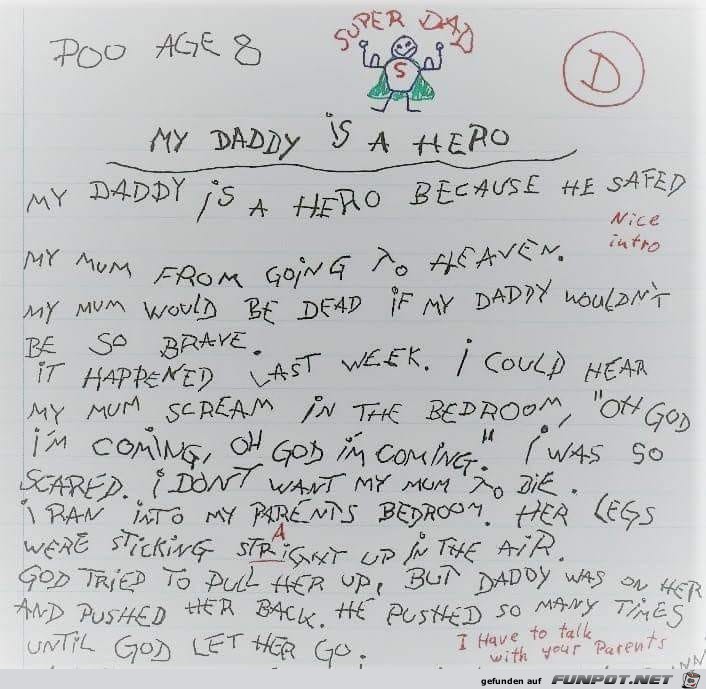 SUPER DAD
POO AGE 8
S
D
MY DADDY iS A HERO
MY DADDY iS A HERO BECAUSE HE SAFED
Nice
intro
MY MUM FROM GOiNG TO HEAVEN.
MY MUM WOULD BE DEAD iF MY DADDY WOULDN'T
BE SO BRAVE.
iT HAPPENED LAST WEEK. i COULD HEAR
MY MUM SCREAM iN THE BEDROOM, "OH GOD
i'M COMiNG, OH GOD i'M COMiNG." i WAS SO
SCARED. i DON'T WANT MY MUM TO DiE.
i RAN iNTO MY PARENTS BEDROOM. HER LEGS
A
WERE STiCKiNG STRiGHT UP iN THE AiR.
GOD TRiED TO PULL HER UP, BUT DADDY WAS ON HER
AND PUSHED HER BACK. HE PUSHED SO MANY TiMES
UNTiL GOD LET HER GO.
I Have to talk
with your Parents
gefunden auf FUNPOT.NET